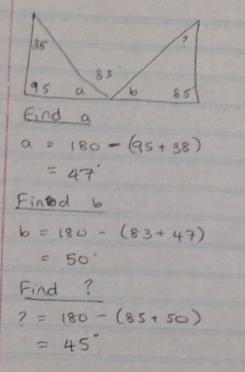 38 ?
83°
95 a b 85
Find a
a = 180 - (95 + 38)
= 47°
Find b
b = 180 - (83 + 47)
= 50°
Find ?
? = 180 - (85 + 50)
= 45°.